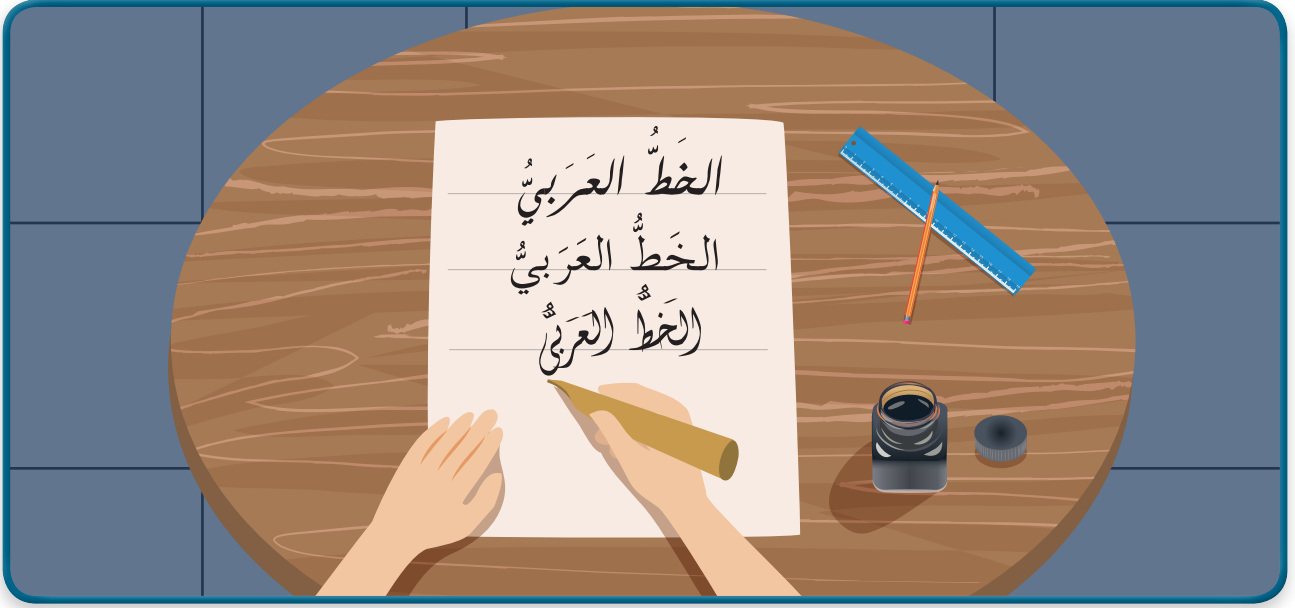 الخَطُّ العَرَبيُّ
الخَطُّ العَرَبيُّ
الخَطُّ العَرَبيُّ